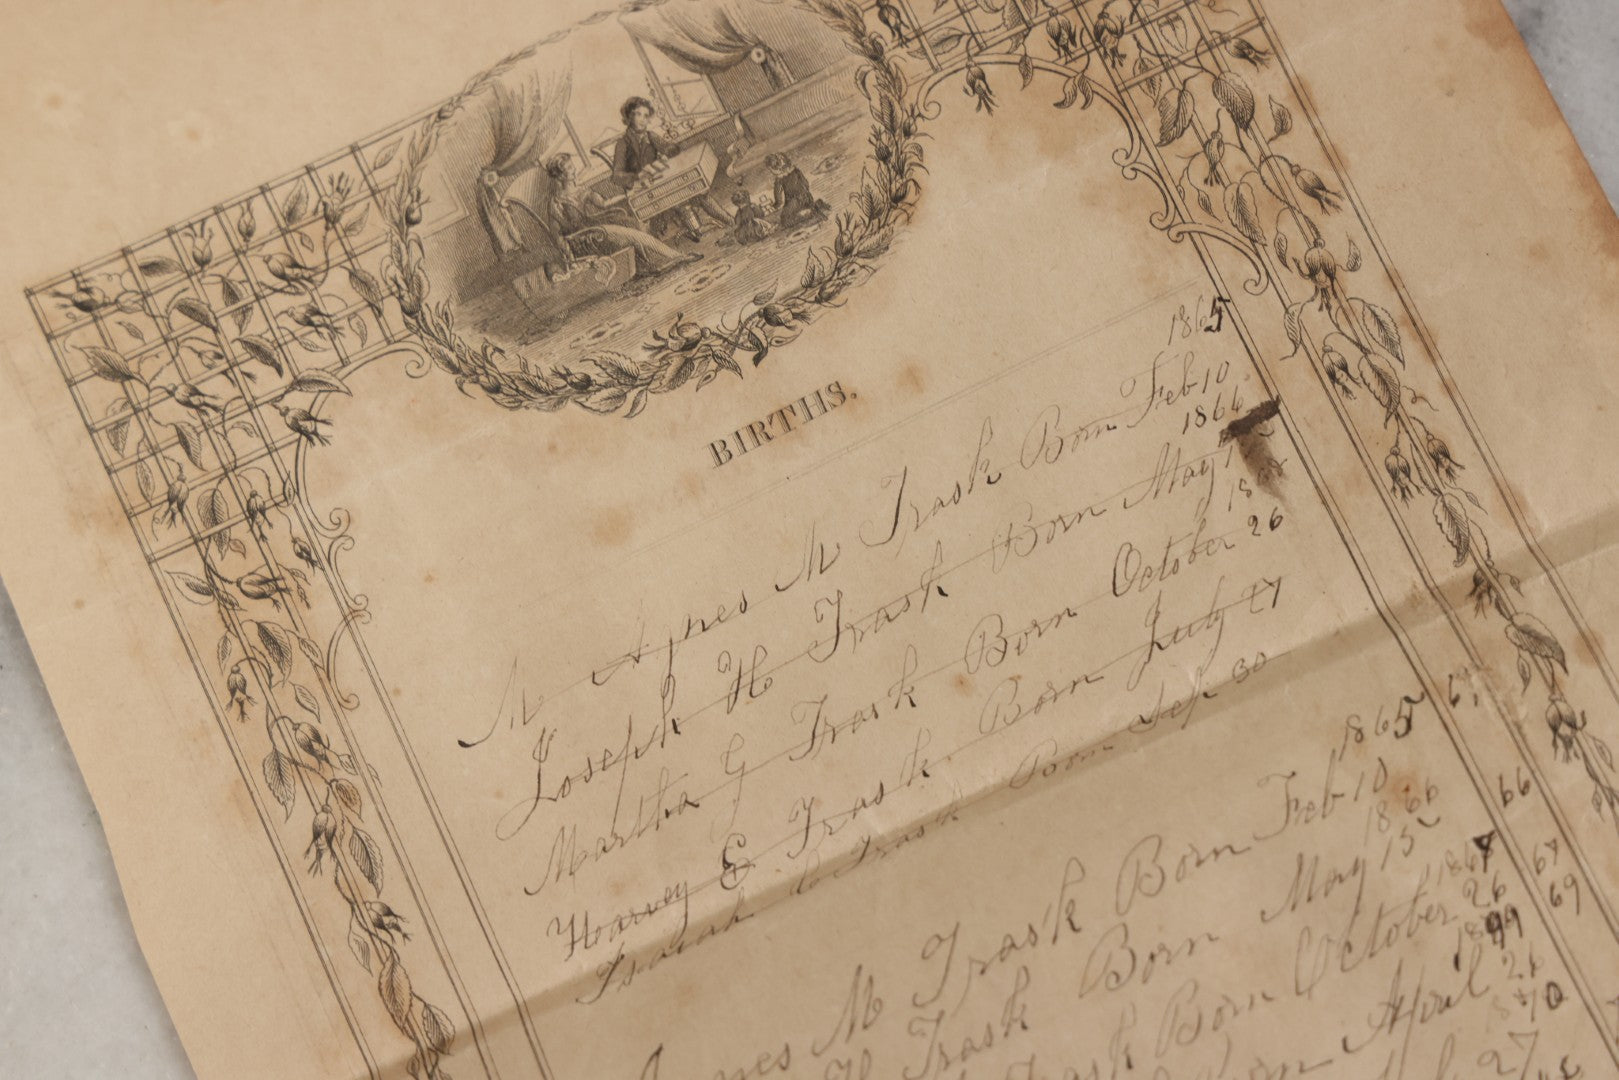 BIRTHS.
1865
M Agnes M Trask Born Feb 10
1866
Joseph H Trask Born May
18
Martha G Trask Born October 26
Harvey E Trask Born July 27
Isaiah C Trask Born Sep 30
1865
Agnes M Trask Born Feb 10
1866 66
H Trask Born May 15
1867 67
Trask Born October 26
1899 69
Born April 26
1870
27